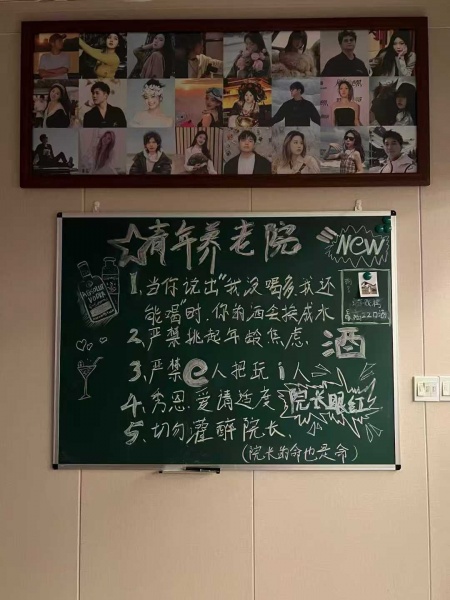 青年养老院
NEW
1. 当你说出"我没喝多,我还
能喝"时,你的酒会换成水
2. 严禁挑起年龄焦虑.
3. 严禁e人把玩i人
4. 秀恩爱请适度
5. 切勿灌醉院长.
(院长的命也是命)
酒
院长眼红
ABSOLUT
VODKA